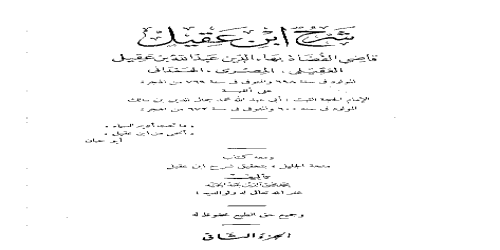 شرح ابن عقيل
قاضي القضاة بهاء الدين عبد الله بن عقيل
العقيلي، المصري، الهمداني
المولود في سنة ٦٩٨ والمتوفى في سنة ٧٦٩ من الهجرة
على ألفية
الإمام الحجة الثبت، أبي عبد الله محمد جمال الدين بن مالك
المولود في سنة ٦٠٠ والمتوفى في سنة ٦٧٢ من الهجرة
« ما تحت أديم السماء،
أنحى من ابن عقيل »
أبو حيان
ومعه كتاب
منحة الجليل، بتحقيق شرح ابن عقيل
تأليف
محمد محيي الدين عبد الحميد
غفر الله تعالى له ولوالديه!
وجميع حق الطبع محفوظ له
الجزء الثاني